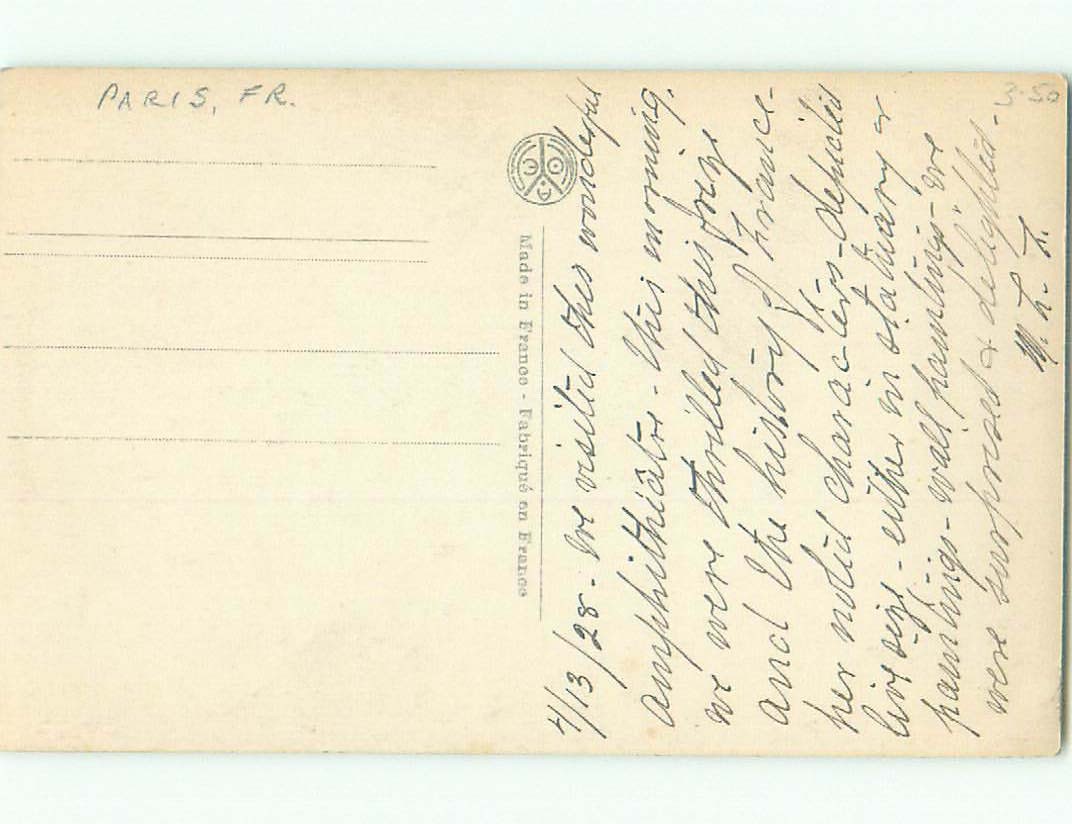 PARIS, FR.
3.50
Made in France - Fabriqué en France
4/13/28 - We visited this wonderful
amphitheatre - this morning.
we were thrilled this
and the history of France -
her noted characters - depicted
live size - either in statuary or
paintings - wall paintings - we
were surprised & delighted -
M. L. L.